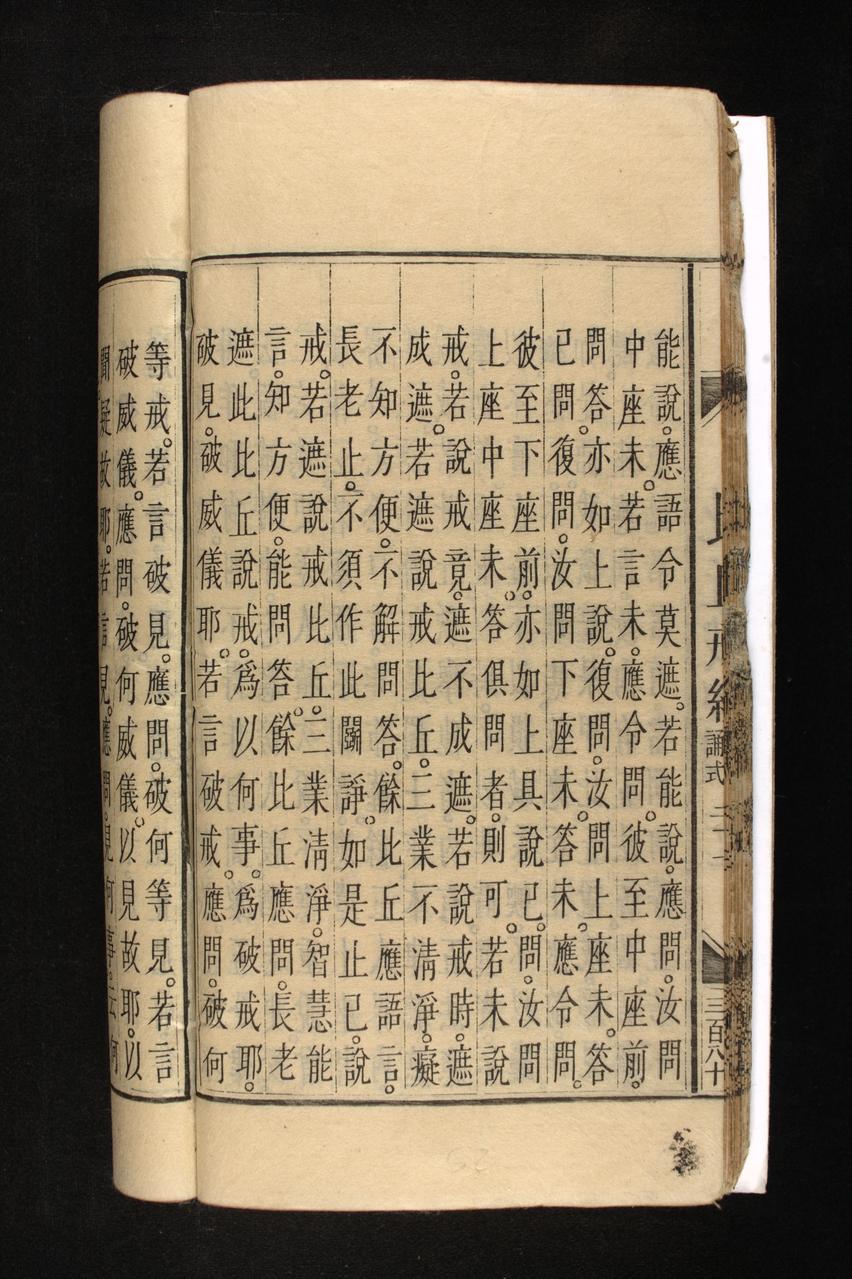 能說。應語令莫遮。若能說。應問。汝問
中座未。若言未。應令問。彼至中座前。
問答。亦如上說。復問。汝問上座未。答
已問。復問。汝問下座未。答未。應令問。
彼至下座前。亦如上具說已。問。汝問
上座中座未。答俱問者。則可。若未說
戒。若說戒竟。遮不成遮。若說戒時。遮
成遮。若遮說戒比丘。三業不清淨。癡
不知方便。不解問答。餘比丘應語言。
長老止。不須作此鬭諍。如是止已。說
戒。若遮說戒比丘。三業清淨。智慧能
言。知方便。能問答。餘比丘應問。長老
遮此比丘說戒。為以何事。為破戒耶。
破見。破威儀耶。若言破戒。應問。破何
等戒。若言破見。應問。破何等見。若言
破威儀。應問。破何威儀。以見故耶。以
聞疑故耶。若言見。應問。見何事。云何
誦式
三百八十